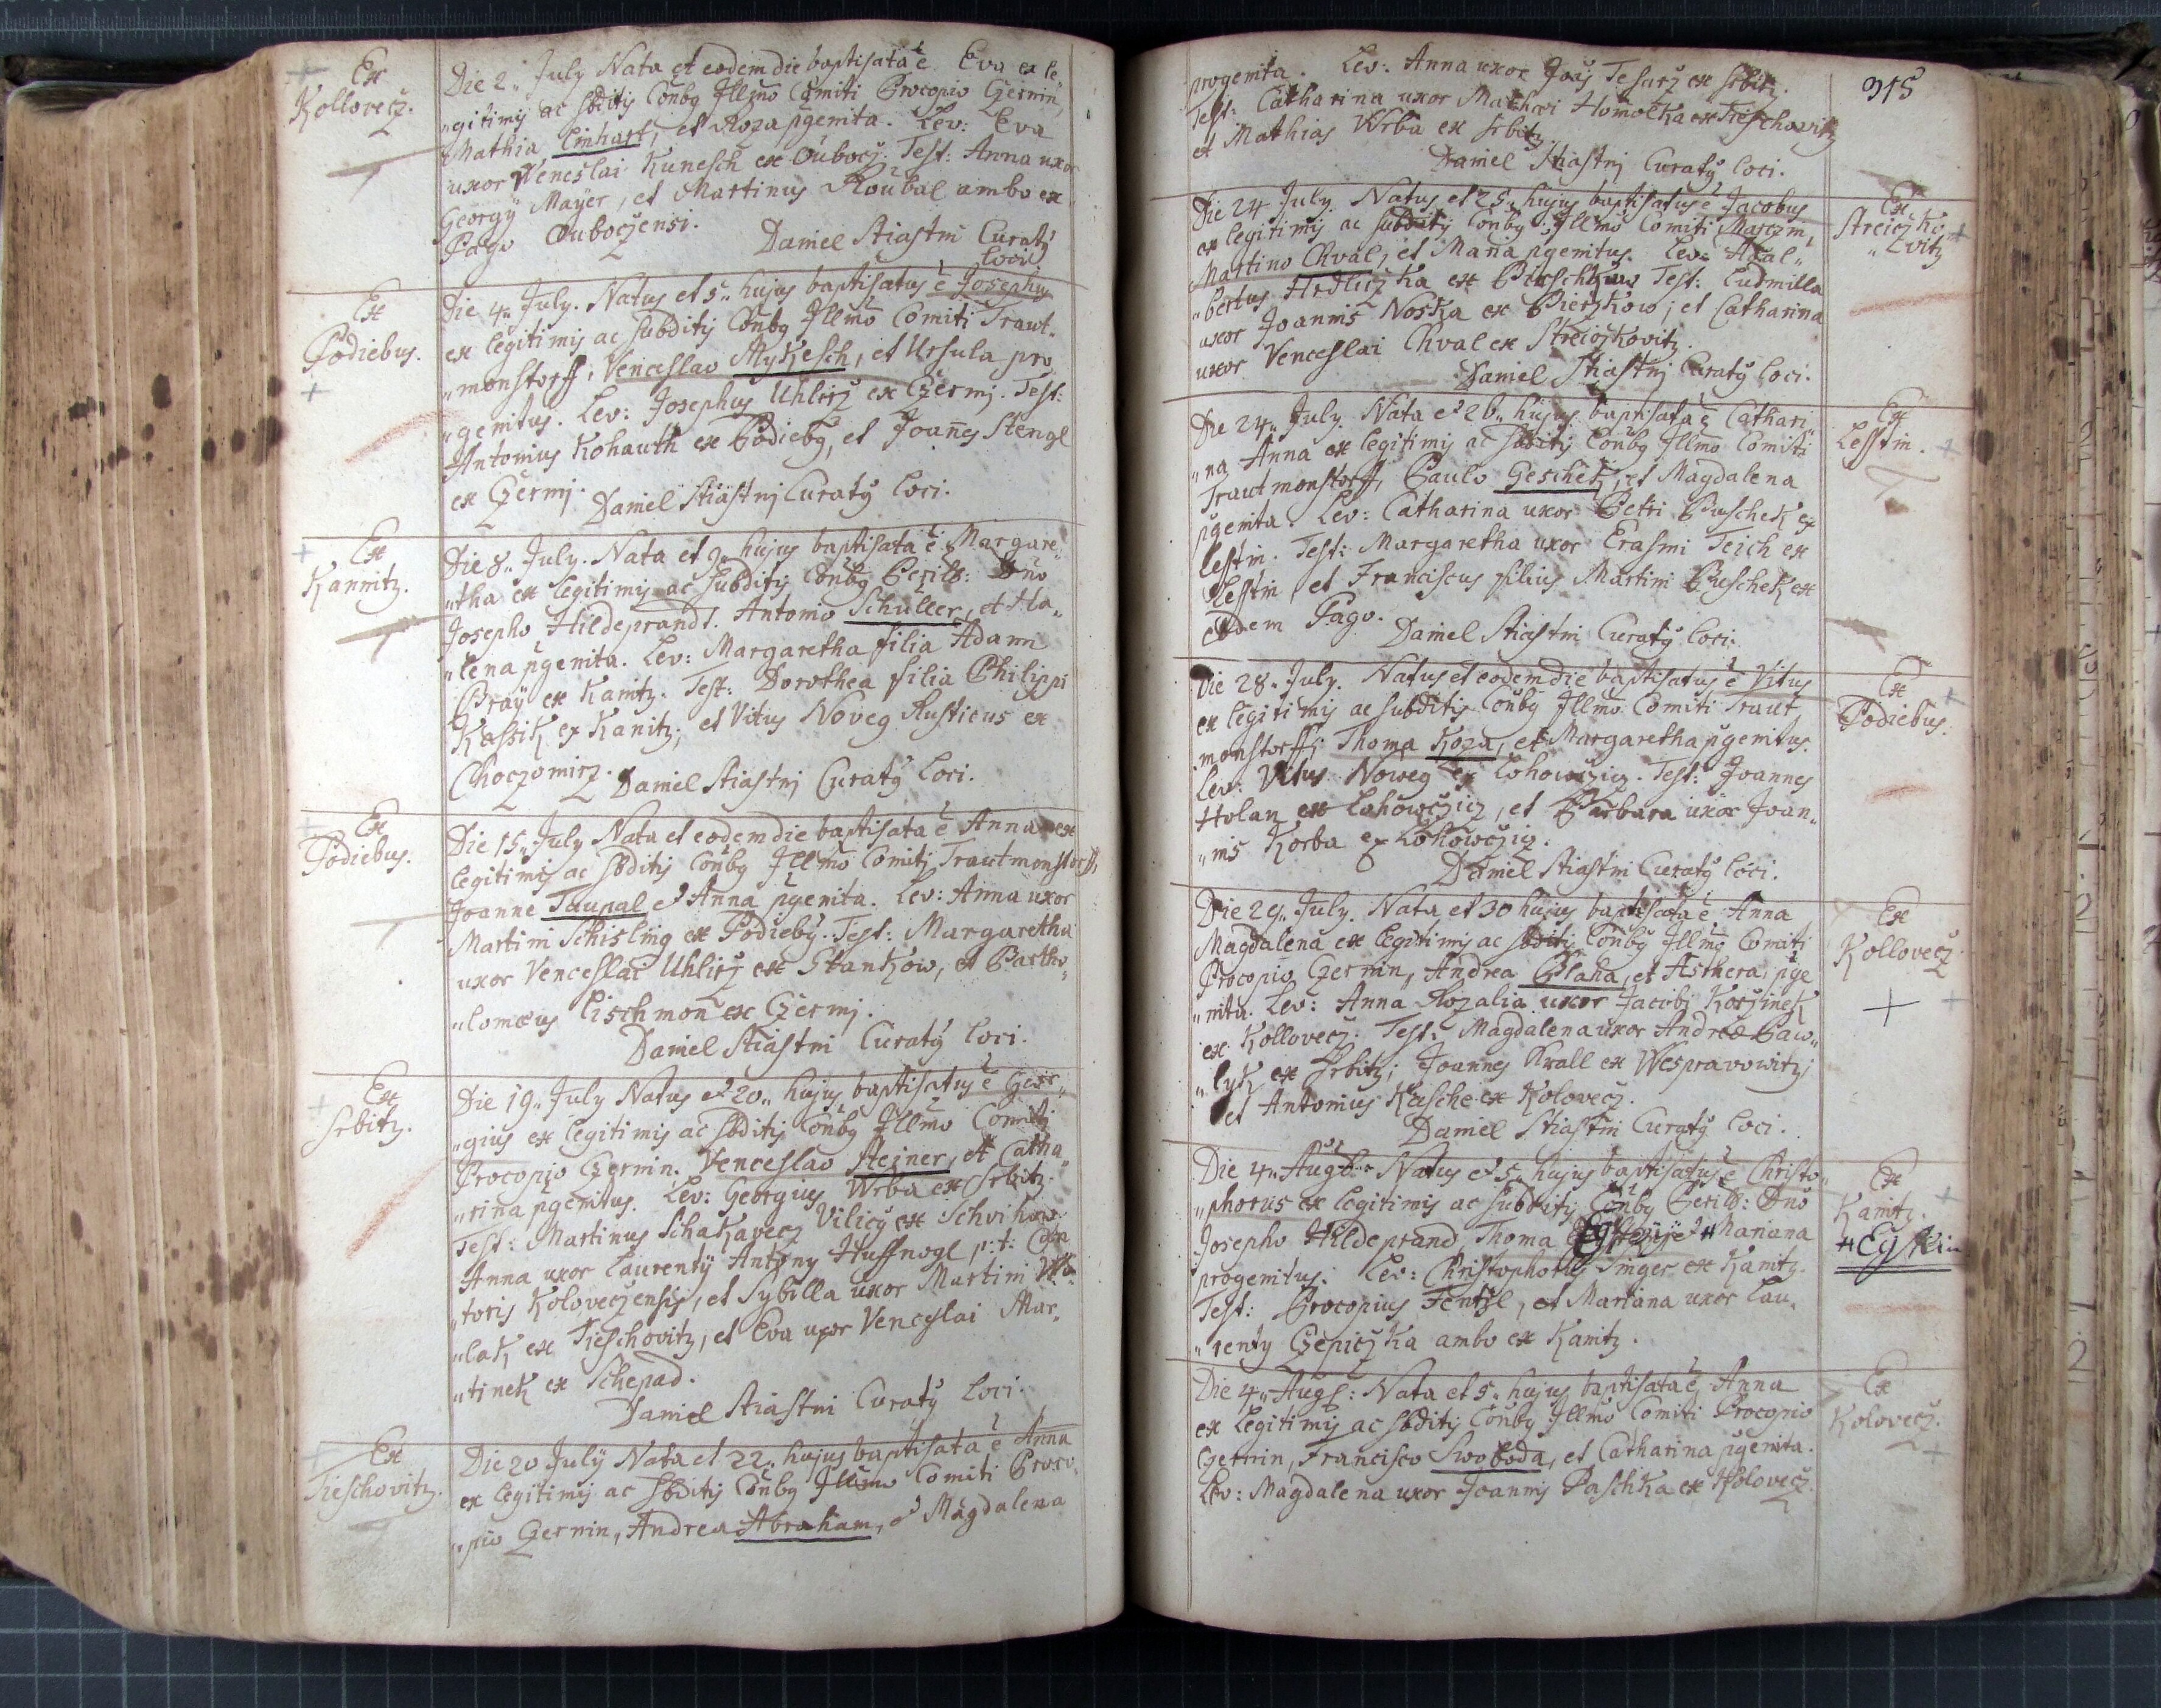 Ex
Kollovecz.
Die 2. July Nata et eodem die baptisata ē Eva ex le„
„gitimis ac sbditis Conbg Illmo Comiti Procopio Czernin,
Mathia Linhart, et Roza pgenita. Lev: Eva
uxor Venceslai Kunesch ex Oubocz. Test: Anna uxor
Georgÿ Maÿer, et Martinus Roubal ambo ex
Pago Ouboczensi.
Daniel Stiastni Curatg
loci
Ex
Podiebus.
Die 4. July. Natus et 5. hujus baptisatus ē Josephus
ex legitimis ac subditis Conbg Illmo Comiti Traut„
„monstorff, Venceslao Mykesch, et Ursula pro
„genitus. Lev: Josephus Uhlirz ex Czermj. Test:
Antonius Kohauth ex Podiebg, et Joañes Stengl
ex Czermj. Daniel Stiastnj Curatg loci.
Ex
Kannitz.
Die 8. July. Nata et 9. hujus baptisata ē Margare„
„tha ex legitimis ac subditis Conbg Perill: Dno
Josepho Hildeprandt. Antonio Schuller, et Ha„
„lena pgenita. Lev: Margaretha filia Adami
Praÿ ex Kanitz. Test: Dorothea filia Philippi
Kassik ex Kanitz, et Vitus Noveg Rusticus ex
Choczomirz. Daniel Stiastnj Curatg loci.
Ex
Podiebus.
Die 15. July Nata et eodem die baptisata ē Anna ex
legitimis ac sbditis Conbg Illmo Comiti Trautmonstorff,
Joanne Taupal et Anna pgenita. Lev: Anna uxor
Martini Schisling ex Podiebg. Test: Margaretha
uxor Venceslai Uhlirz ex Stankow, et Bartho„
„lomeus Lischmoñ ex Czermj.
Daniel Stiastni Curatg loci.
Ex
Srbitz.
Die 19. July Natus et 20. hujus baptisatus ē Geor„
„gius ex legitimis ac sbditis Conbg Illmo Comiti
Procopio Czernin. Venceslao Stejner, et Catha„
„rina pgenitus. Lev: Georgius Wrba ex Srbitz.
Test: Martinus Schakavecz Vilicg ex Schvihow
Anna uxor Laurentÿ Antony Huffnogl p:t:
„toris Koloveczensis, et Sybilla uxor Martini
„lak ex Tieschovitz, et Eva uxor Venceslai Mar„
„tinek ex Schepad.
Daniel Stiastni Curatg loci.
Ex
Tieschovitz.
Die 20 Julÿ Nata et 22. hujus baptisata ē Anna
ex legitimis ac sbditis Conbg Illmo Comiti Proco„
„pio Czernin, Andrea Abraham, et Magdalena
315
progenita. Lev: Anna uxor Jois Tesarz ex Srbitz.
Test: Catharina uxor Mathaei Homolka ex Tieschovitz
et Mathias Wrba ex Srbitz.
Daniel Stiastnj Curatg loci.
Ex
Streiczko
„vitz
Die 24 July. Natus et 25. hujus baptisatus ē Jacobus
ex legitimis ac subditis Conbg Illmo Comiti
Martino Chval, et Maria pgenitus. Lev: Adal„
„bertus Hrdliczka ex Test: Ludmilla
uxor Joannis Noska ex Bierzkow; et Catharina
uxor Venceslai Chval ex Streiczkovitz.
Daniel Stiastnj Curatg loci.
Ex
Lestin.
Die 24. July. Nata et 26. hujus baptisata ē Cathari„
„na Anna ex legitimis ac sbditis Conbg Illmo Comiti
Trautmonstorff, Paulo Geschek, et Magdalena
pgenita. Lev: Catharina uxor Petri Puschek ex
Lestin. Test: Margaretha uxor Erasmi Teich ex
Lestin et Franciscus filius Martini Puschek ex
eodem Pago. Daniel Stiastni Curatg loci.
Ex
Podiebus.
Die 28. July. Natus et eodem die baptisatus ē Vitus
ex legitimis ac subditis Conbg Illmo Comiti Traut
monstorff; Thoma Koza, et Margaretha pgenitus.
Lev: Vitus Noweg ex Lohowczicz. Test: Joannes
Holan ex Lohowczicz, et Barbara uxor Joan„
„nis Korba ex Lohowczicz.
Daniel Stiastni Curatg loci.
Ex
Kollovecz.
Die 29. July. Nata et 30 hujus baptisata ē Anna
Magdalena ex legitimis ac sbditis Conbg Illmo Comiti
Procopio Czernin, Andrea Blaha, et Asthera, pge
„nita. Lev: Anna Rozalia uxor Jacobj Korzinek
ex Kollovecz. Test: Magdalena uxor Andreae Paw„
„lyk ex Srbitz; Joannes Krall ex Wespravowitz;
et Antonius Kasche ex Kolovecz.
Daniel Stiastni Curatg loci.
Ex
Kanitz.
# Egstein
Die 4. Aug: Natus et 5. hujus baptisatus ē Christo„
„phorus ex legitimis ac subditis Conbg Perill: Dno
Josepho Hildeprand, Thoma et # Mariana
progenitus. Lev: Christophorus Singer ex Kanitz.
Test: Procopius Fentzl, et Mariana uxor Lau„
„renty Czepiczka ambo ex Kanitz.
Ex
Kolovecz.
Die 4. Aug: Nata et 5. hujus baptisata ē Anna
ex legitimis ac sbditis Conbg Illmo Comiti Procopio
Czernin, Francisco Swoboda, et Catharina pgenita.
Lev: Magdalena uxor Joannis Paschka ex Kolovecz.